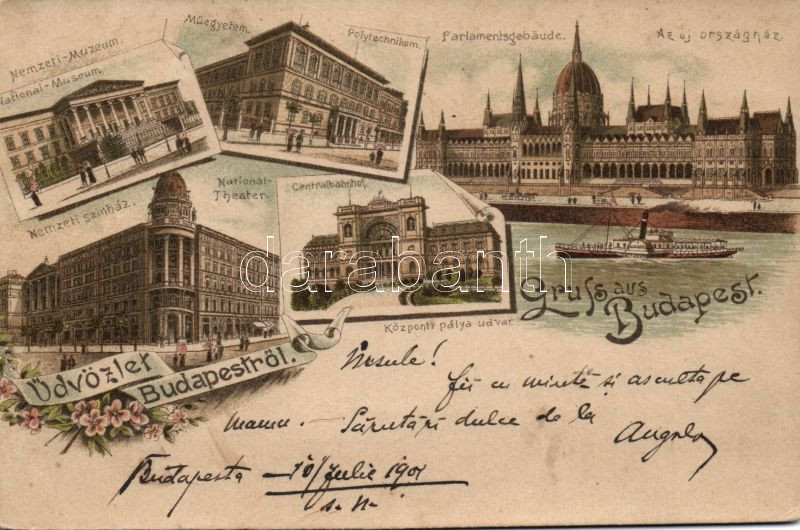 Nemzeti-Muzeum.
National-Museum.
Műegyetem.
Polytechnikom.
Parlamentsgebäude.
Az uj országház.
Nemzeti szinház.
National-
Theater.
Centralbahnhof.
Központi pálya udvar.
Gruss aus
Budapest.
Üdvözlet
Budapestről.
darabanth
fii cu minte si asculta pe
mama. - Sărutări dulce de la
Angelo
Budapesta 10/Julie 1901
s. n.